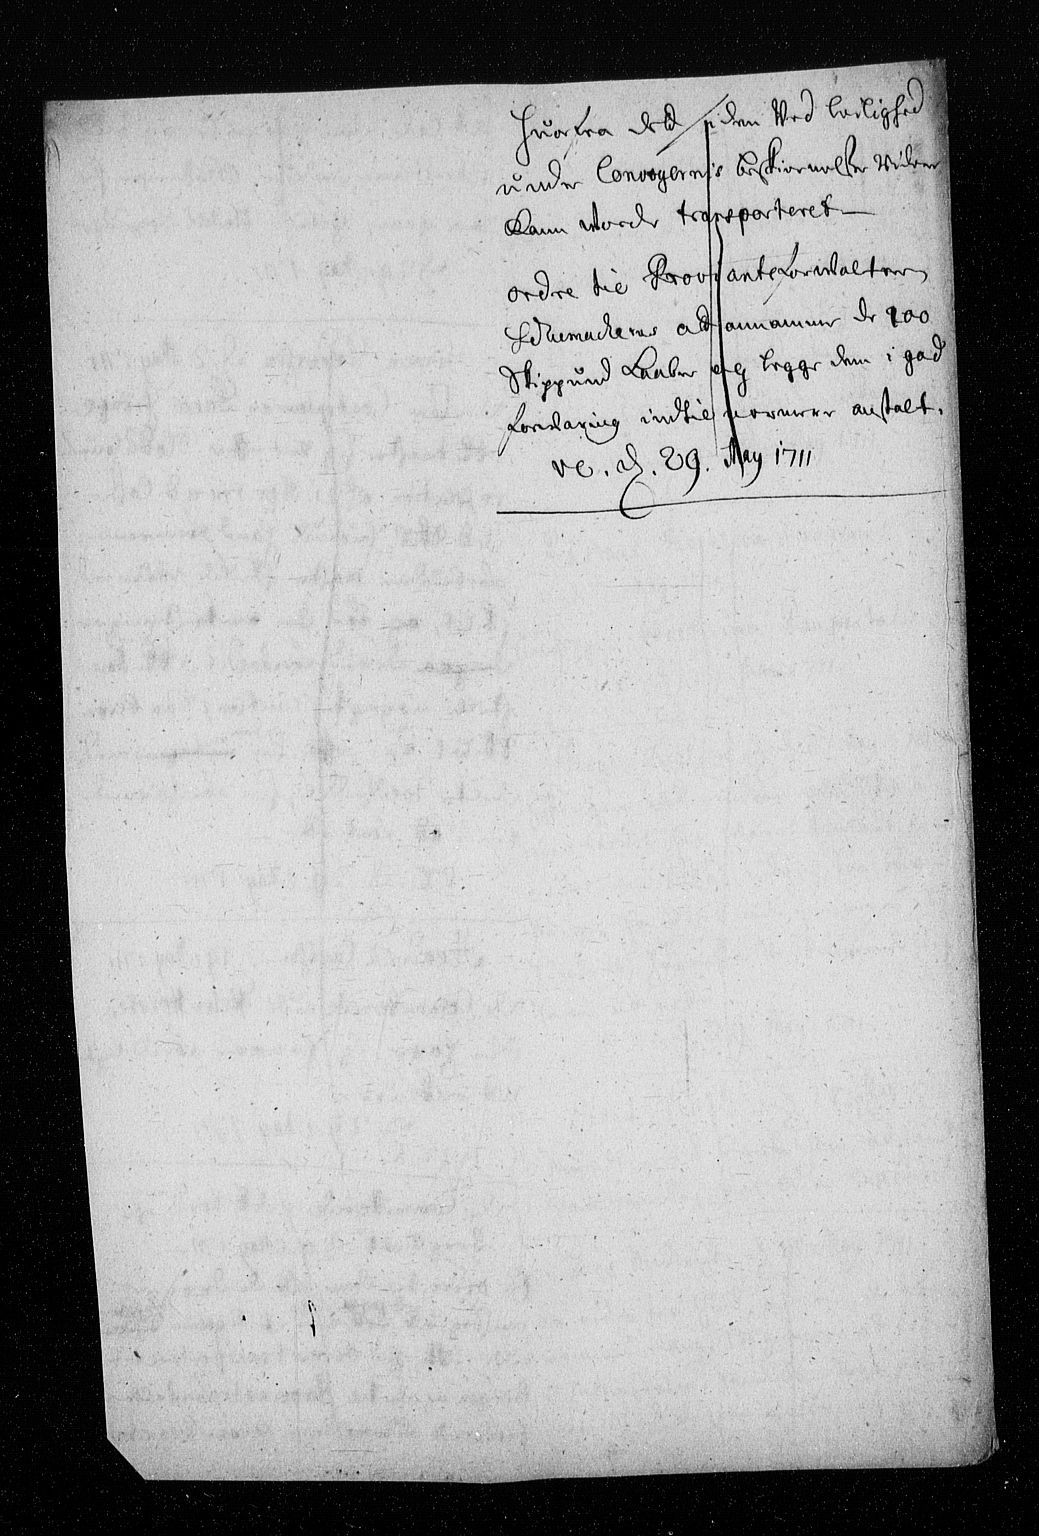 Hvorfra det siden ved leilighed
under Convoyernis beskiermelse videre
kann vorde transporteret
ordre til Proviantforvalteren
Schumacheren att annamme de 200
Skippund Kaaber og legge dem i god
forvaring indtil nermere anstalt.
d. 29. May 1711